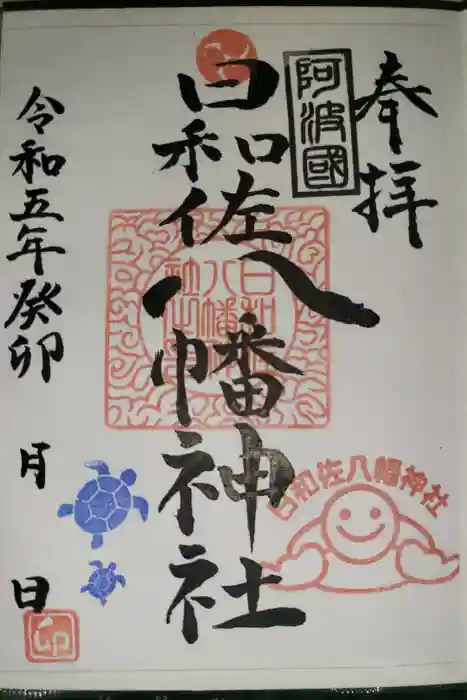 奉拝
阿波國
日和佐八幡神社
日和佐八幡神社
日和佐八幡神社
令和五年癸卯
月
日
卯